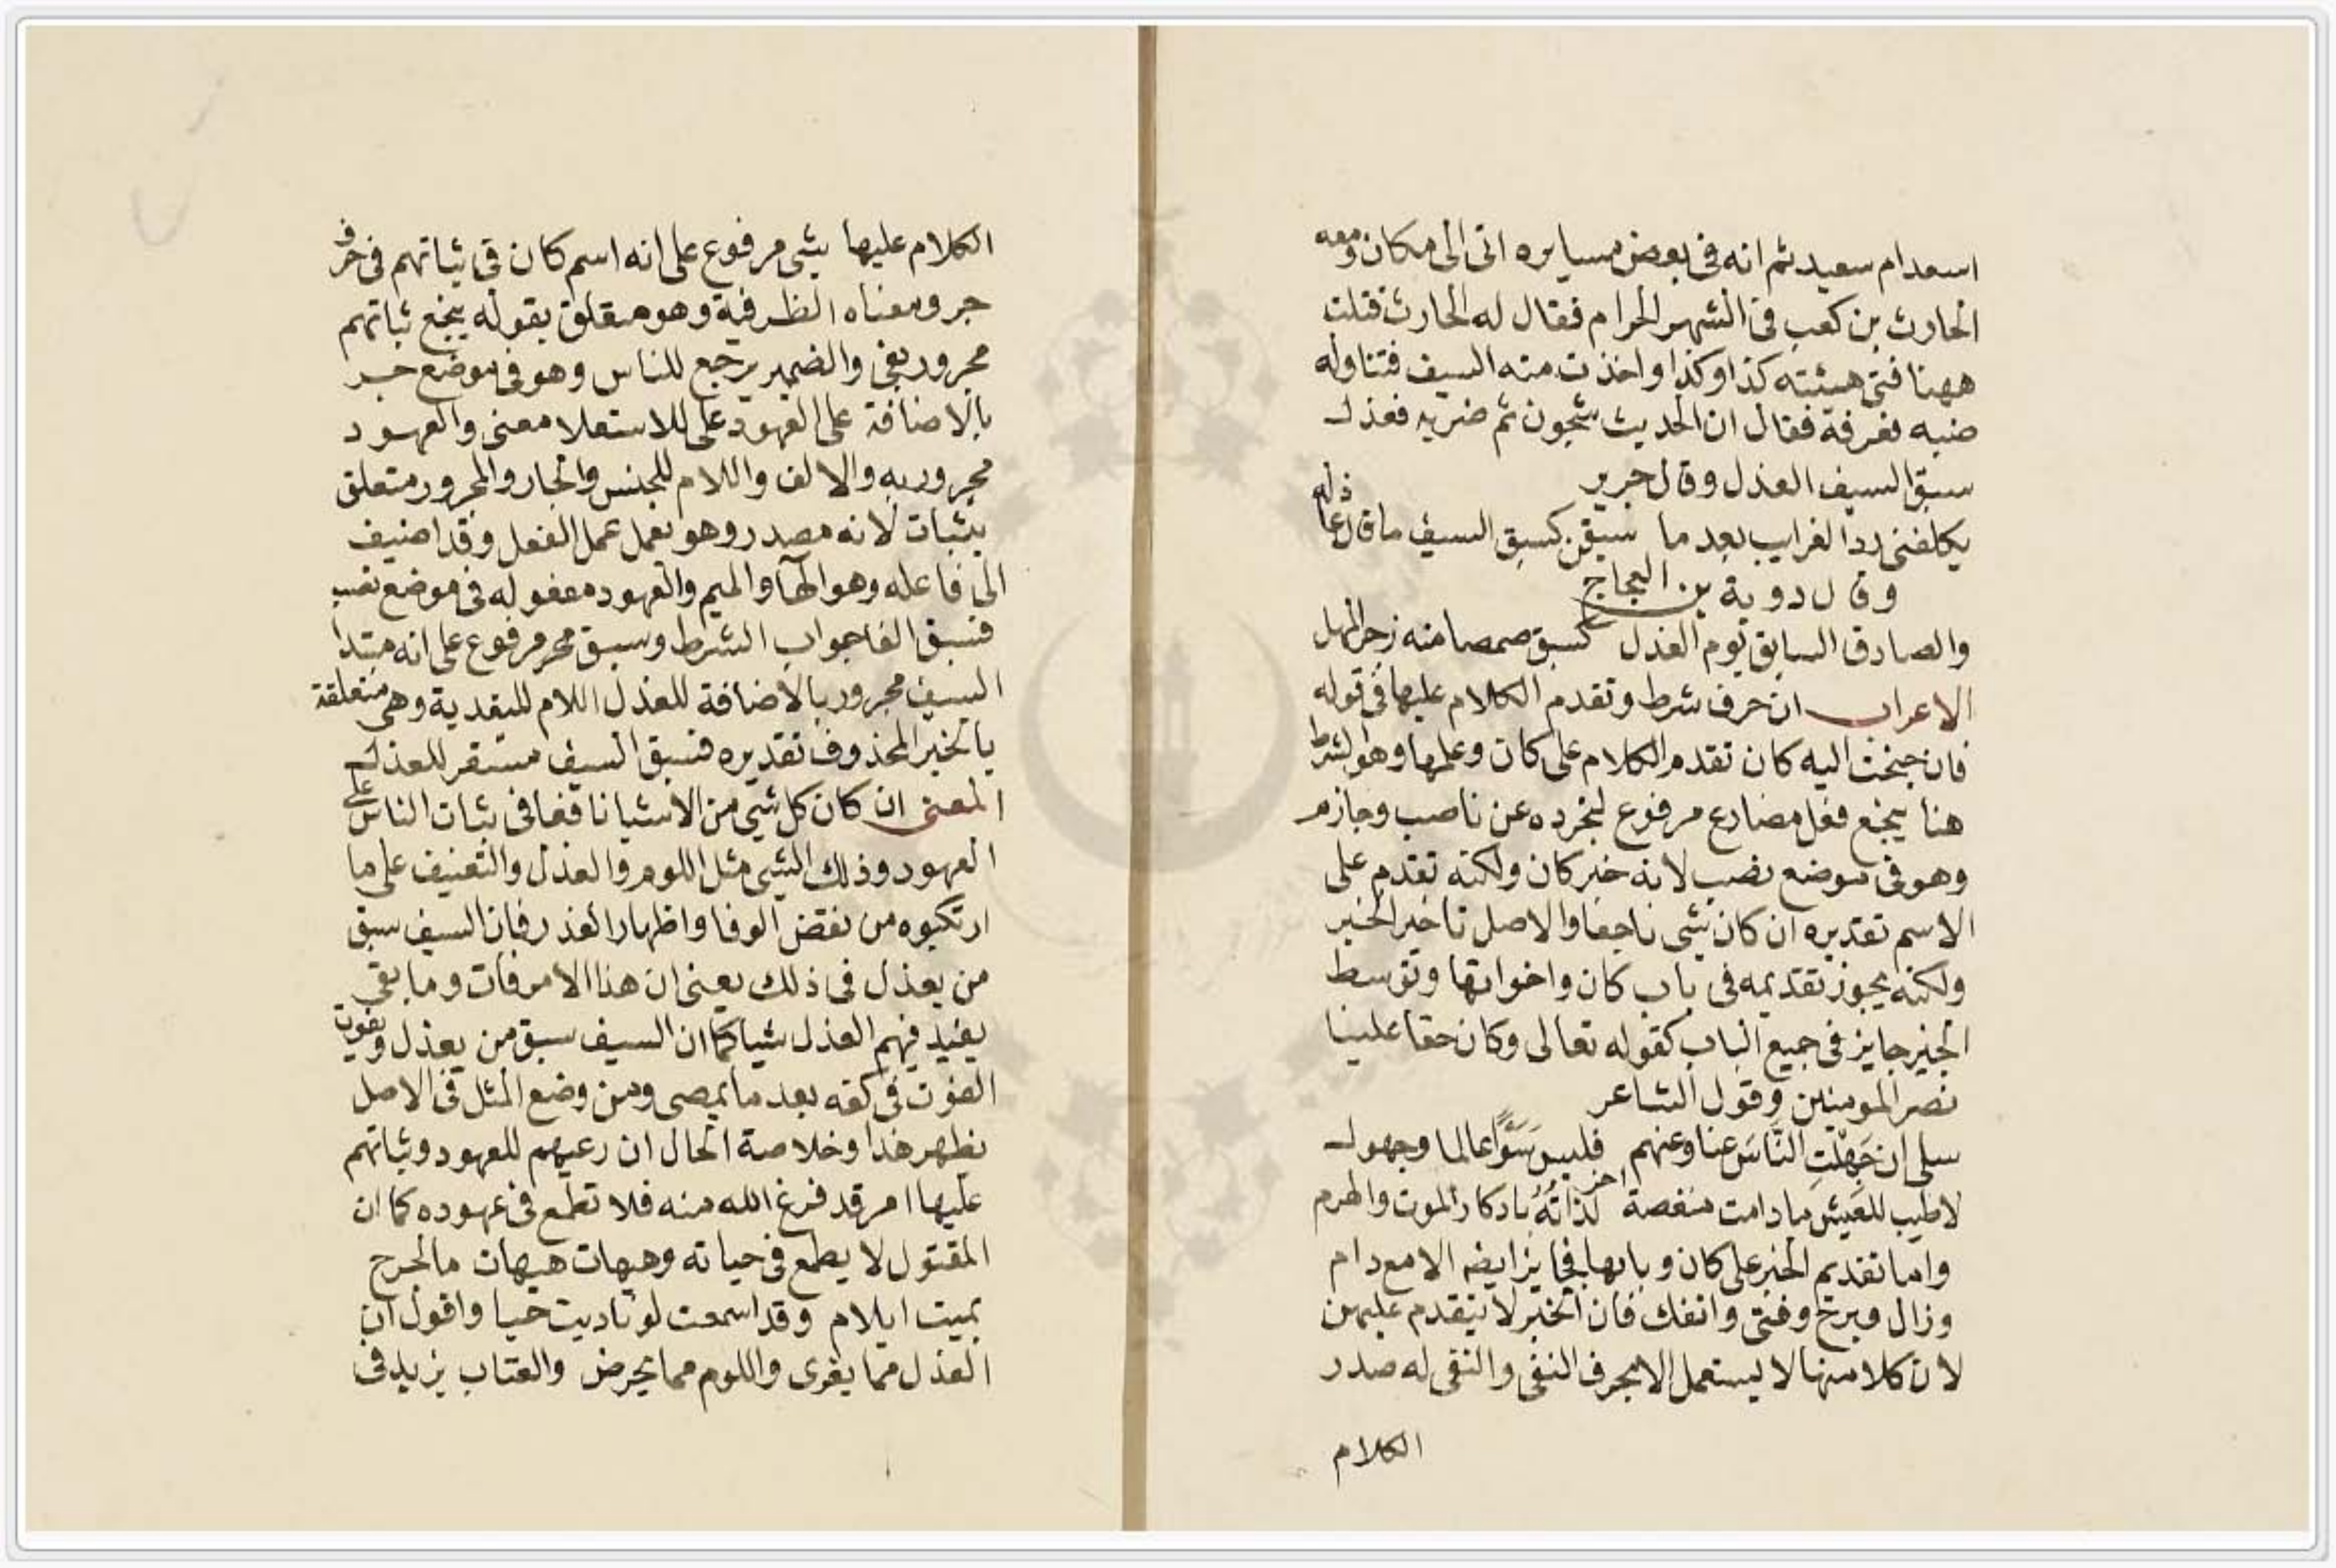 اسعد ام سعيد ثم انه فى بعض مسايره اتى الى مكان ومعه
الحارث بن كعب فى الشهر الحرام فقال له الحارث قتلت
ههنا فتى هيئته كذا وكذا واخذت منه السيف فتناوله
ضبه فعرفه فقال ان الحديث شجون ثم ضربه فعذل
سبق السيف العذل وقال جرير
يكلفنى رد الغراب بعد ما سبقن كسبق السيف ما قال عاذله
وقال روبة بن العجاج
والصادق السابق يوم العذل كسبق صمصامته زجر المهل
الاعراب ان حرف شرط وتقدم الكلام عليها فى قوله
فان جنحت اليه كان تقدم الكلام على كان وعلمها وهو لشرط
هنا ينجع فعل مضارع مرفوع لتجرده عن ناصب وجازم
وهو فى موضع نصب لانه خبر كان ولكنه تقدم على
الاسم تقديره ان كان شى ناجعا والاصل تاخير الخبر
ولكنه يجوز تقديمه فى باب كان واخواتها وتوسط
الخبر جايز فى جميع الباب كقوله تعالى وكان حقا علينا
نصر المومنين وقول الشاعر
سلى ان جَهِلْتِ النَّاسَ عنا وعنهم فليس سَوًا عالما وجهول
اخر
لاطيب للعيش مادامت منغصة لذاتُهُ بادكار الموت والهرم
واما تقديم الخبر على كان وبابها فجايز ايضا الا مع دام
وزال وبرح وفتى وانفك فان الخبر لا يتقدم عليهن
لان كلا منها لا يستعمل الا بحرف النفى والنفى له صدر
الكلام
الكلام عليها شى مرفوع على انه اسم كان فى ثباتهم فى حرف
جر ومعناه الظرفية وهو متعلق بقوله ينجع ثباتهم
مجرور بفى والضمير يرجع للناس وهو فى موضع جر
بالاضافة على العهود على للاستعلا معنى والعهود
مجرور به والالف واللام للجنس والجار والمجرور متعلق
بثبات لانه مصدر وهو يعمل عمل الفعل وقد اضيف
الى فاعله وهو الهآ والميم والعهود مفعوله فى موضع نصب
فسبق الفا جواب الشرط وسبق مرفوع على انه مبتدا
السيف مجرور بالاضافة للعذل اللام للتعدية وهى متعلقة
بالخبر المحذوف تقديره فسبق السيف مستقر للعذل
المعنى ان كان كل شى من الاشيا نافعا فى ثبات الناس على
العهود وذلك الشى مثل اللوم والعذل والتعنيف على ما
ارتكبوه من نقض الوفا واظهار الغدر فان السيف سبق
من يعذل فى ذلك يعنى ان هذا الامر فات وما بقى
يفيد فيهم العذل شيا كما ان السيف سبق من يعذل ويفوت
الفوت فى كفه بعد ما يمضى ومن وضع المثل فى الاصل
يظهر هذا وخلاصة الحال ان رعيهم للعهود وثباتهم
عليها امر قد فرغ الله منه فلا تطمع فى عهوده كما ان
المقتول لا يطمع فى حياته وهيهات هيهات ما لجرح
بميت ايلام وقد اسمعت لو ناديت حيا واقول ان
العذل مما يغرى واللوم مما يحرض والعتاب يزيد فى